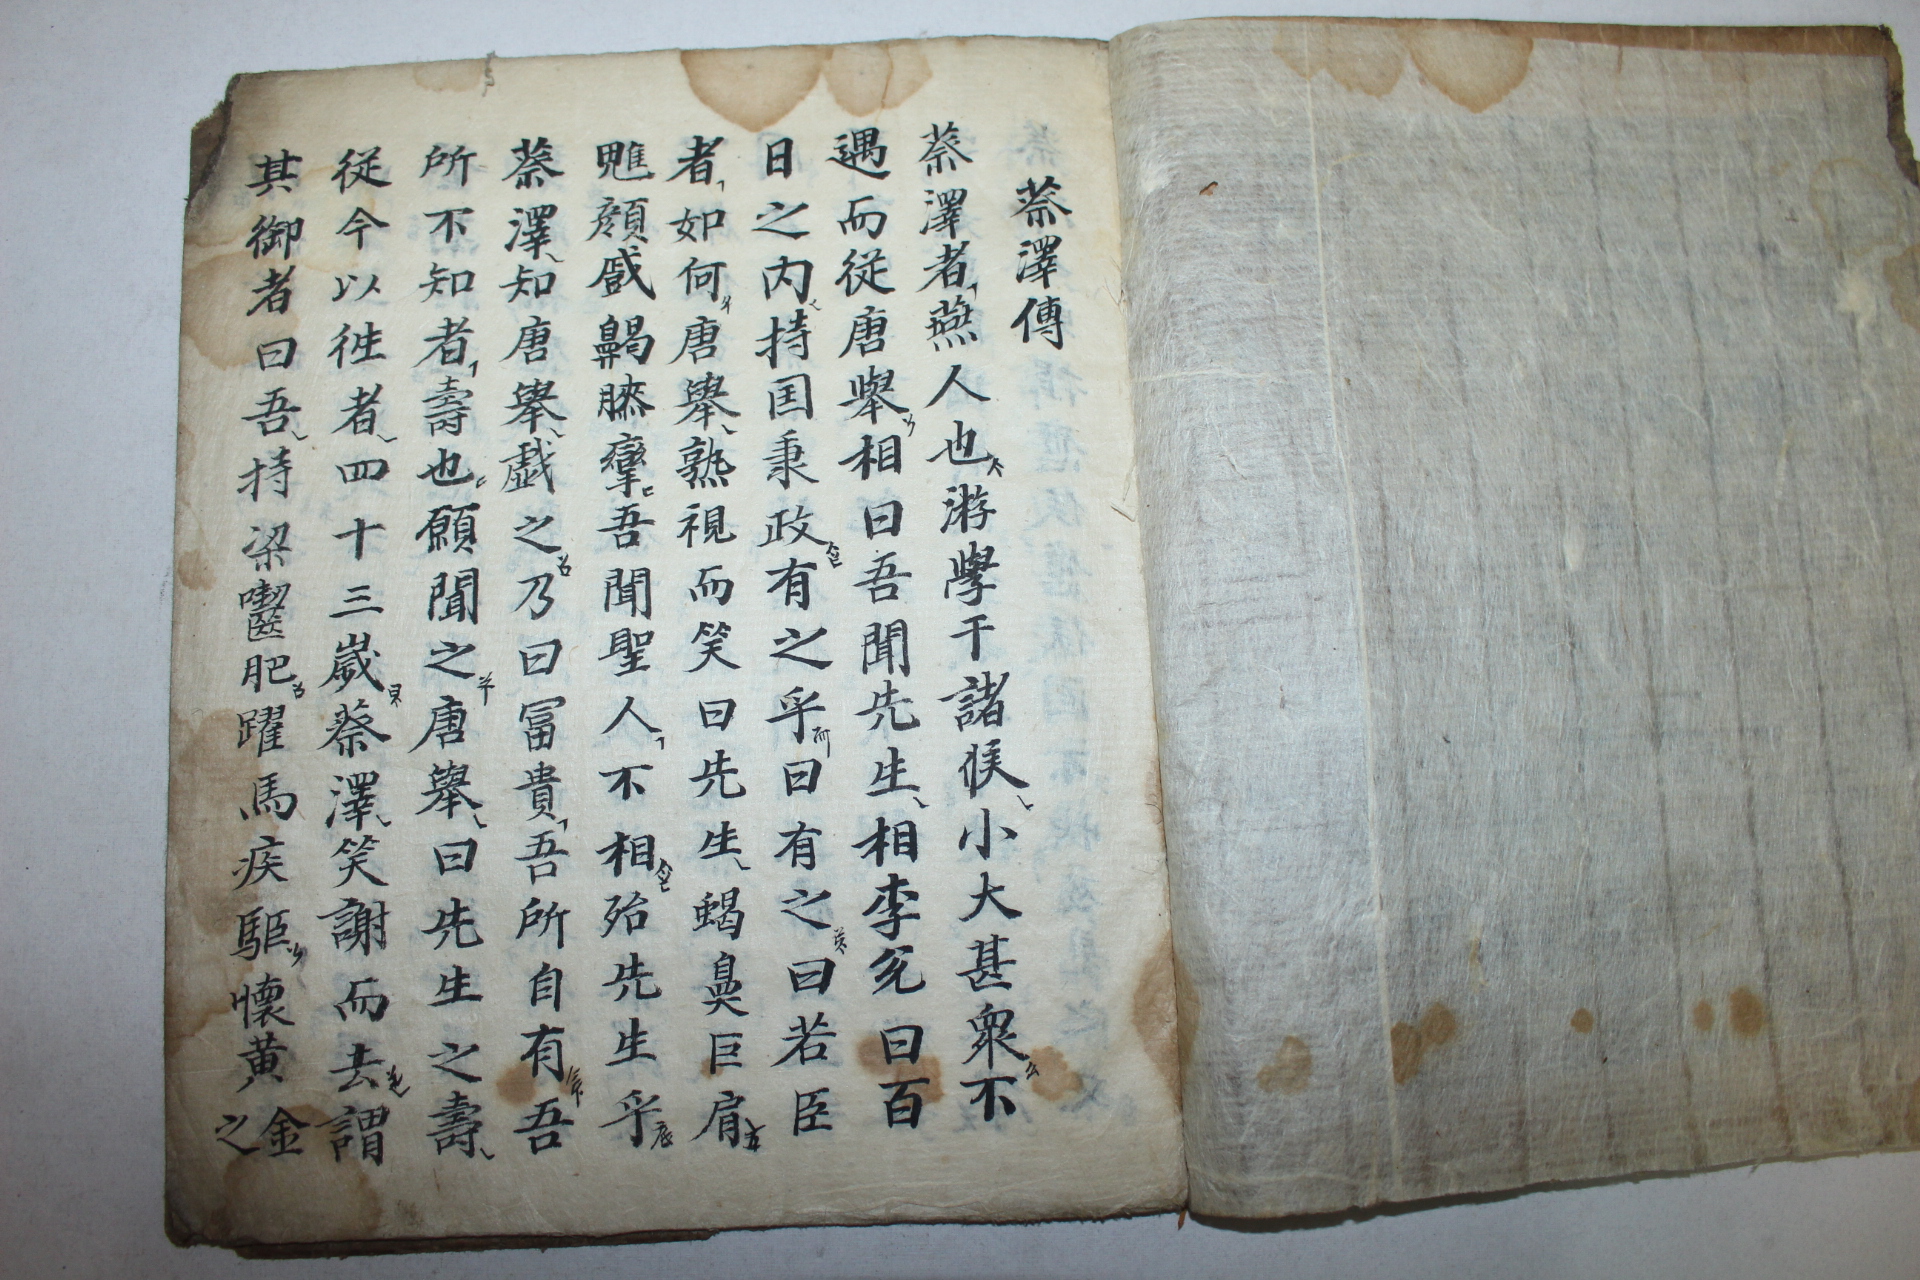 蔡澤傳
蔡澤者燕人也游學干諸侯小大甚衆不
遇而從唐擧相曰吾聞先生相李兌曰百
日之內持国秉政有之乎曰有之曰若臣
者如何唐擧熟視而笑曰先生蝎鼻巨肩
魋顔戚鼻曷膝攣吾聞聖人不相殆先生乎
蔡澤知唐擧戯之乃曰冨貴吾所自有吾
所不知者壽也願聞之唐擧曰先生之壽
從今以徃者四十三歲蔡澤笑謝而去謂
其御者曰吾持梁囓肥躍馬疾驅懷黃金之